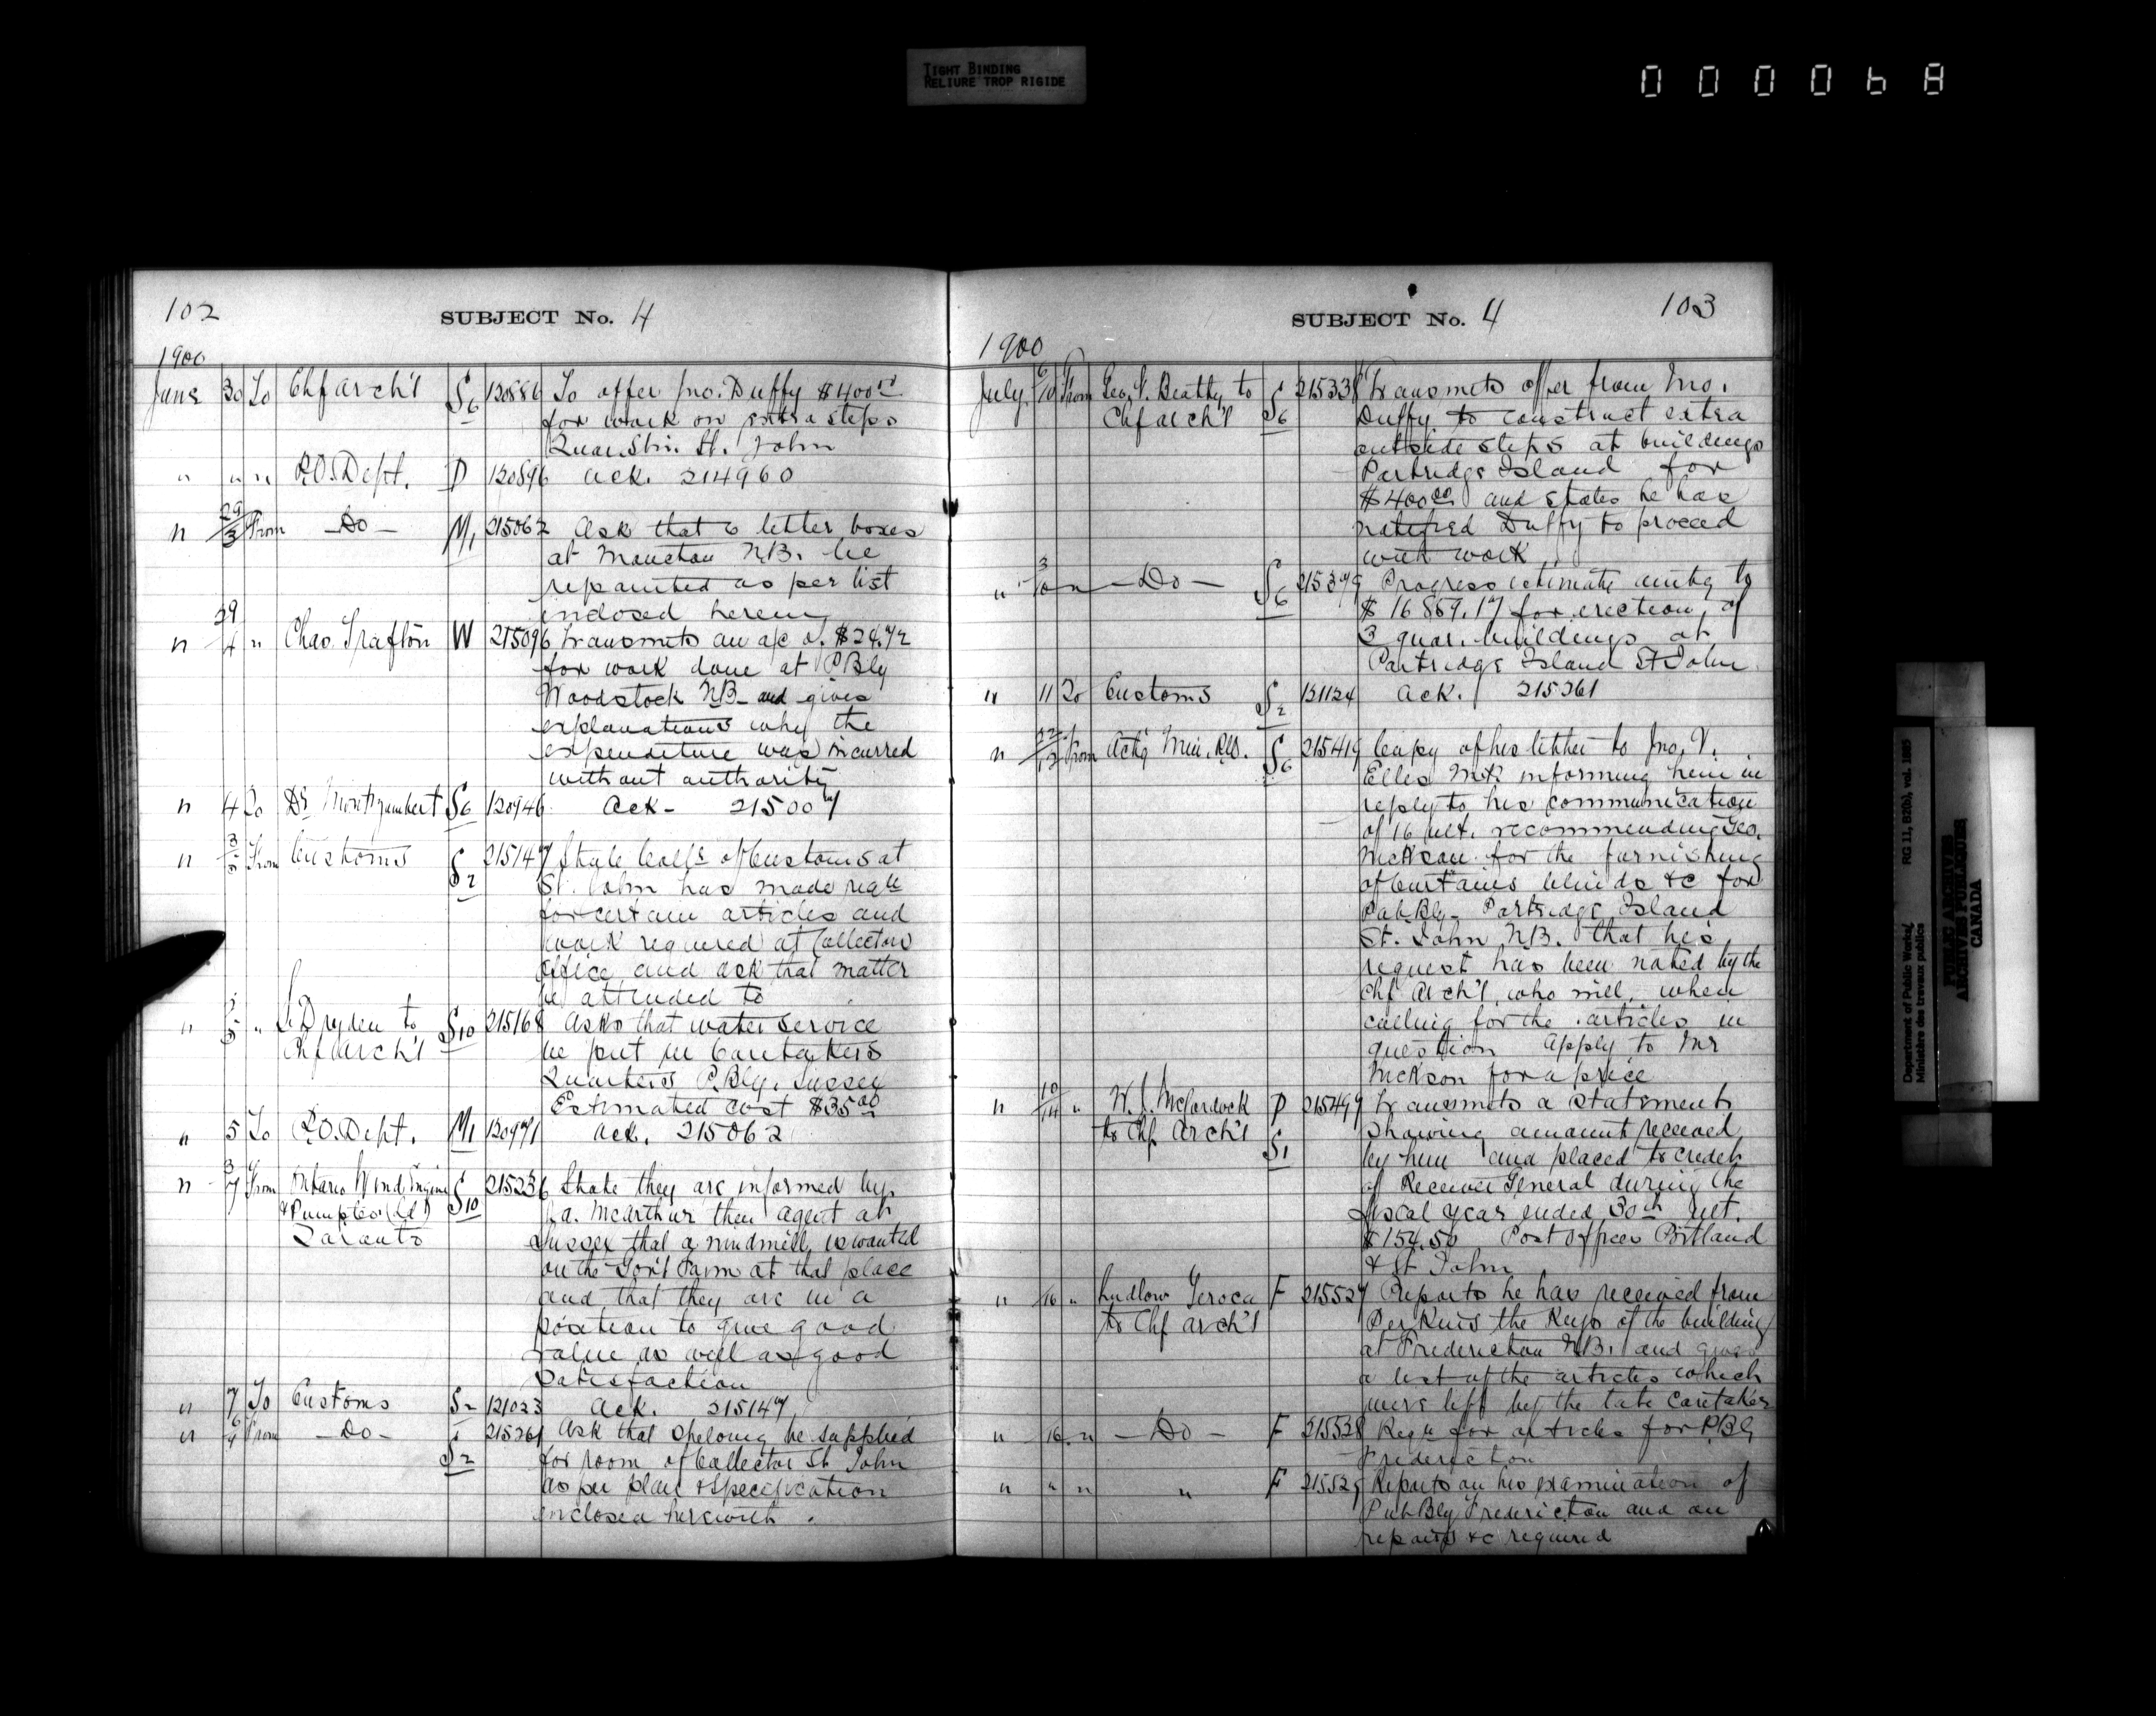 TIGHT BINDING
RELIURE TROP RIGIDE
000068
102
SUBJECT No. 4
1900
June 30 To Chf Arch't S6 120886 To offer Jno. Duffy $400.00
for work on extra steps
Quar. Stn. St. John
" " " P.O. Dept. D 120896 Ack. 214960
" 29/3 From - Do - M1 215062 Ask that 6 letter boxes
at Moncton N.B. be
repainted as per list
inclosed herein
" 29/4 " Chas. Trafton W 215096 Transmits an a/c of $24.72
for work done at P Bly
Woodstock N.B. and gives
explanations why the
expenditure was incurred
without authority
" 4 To Dr Montizambert S6 120946 Ack - 215007
" 3/5 From Customs S2 215147 State Coll's of Customs at
St. John has made reqn
for certain articles and
work required at Collectors
Office and ask that matter
be attended to
" 3/5 " Dryden to S10 215168 Asks that water service
Chf Arch't be put in Caretakers
Quarters P. Bly. Sussex
Estimated cost $35.00
" 5 To P.O. Dept. M1 120971 Ack. 215062
" 3/7 From Ontario Wind Engine S10 215236 State they are informed by
& Pump Co. (Ld) a. McArthur their agent at
Toronto Sussex that a windmill is wanted
on the Gov't Farm at that place
and that they are in a
position to give good
value as well as good
satisfaction
" 7 To Customs S2 121023 Ack. 215147
" 6/9 From - Do - S2 215261 Ask that shelving be supplied
for room of Collector St. John
as per plan & specification
enclosed herewith.
SUBJECT No. 4
103
1900
July 6/10 From Geo. F. Beatty to S6 215338 Transmits offer from Jno.
Chf Arch't Duffy to construct extra
outside steps at buildings
Partridge Island for
$400.00 and states he has
notified Duffy to proceed
with work
" 3/10 " - Do - S6 215379 Progress estimate amtg to
$16859.17 for erection of
3 quar. buildings at
Partridge Island St John
" 11 To Customs S2 121124 Ack. 215261
" 12/12 From Actg Min. S6 215419 Copy of his letter to Jno. V.
Ellis M.P. informing him in
reply to his communication
of 16 ult. recommending Geo.
for the furnishing
of Curtains blinds &c for
Pub Bly. Partridge Island
St. John N.B. that his
request has been noted by the
Chf Arch't who will, when
calling for the articles in
question apply to Mr
for a price
" 10/14 " W. J. McCordock P 215499 Transmits a statement
to Chf Arch't S1 showing amount received
by him and placed to credit
of Receiver General during the
fiscal year ended 30th ult.
$154.50 Post Offices Portland
& St John
" 16 " Ludlow to F 215527 Reports he has received from
to Chf Arch't Perkins the keys of the building
at Fredericton N.B. and gives
a list of the articles which
were left by the late Caretaker
" 16 " - Do - F 215528 Reqn for articles for P.Bly
Fredericton
" " " " F 215529 Reports on his examination of
Pub Bly Fredericton and on
repairs &c required
Department of Public Works
Ministère des travaux publics
RG 11, B2(b), vol. 1885
PUBLIC ARCHIVES
ARCHIVES PUBLIQUES
CANADA